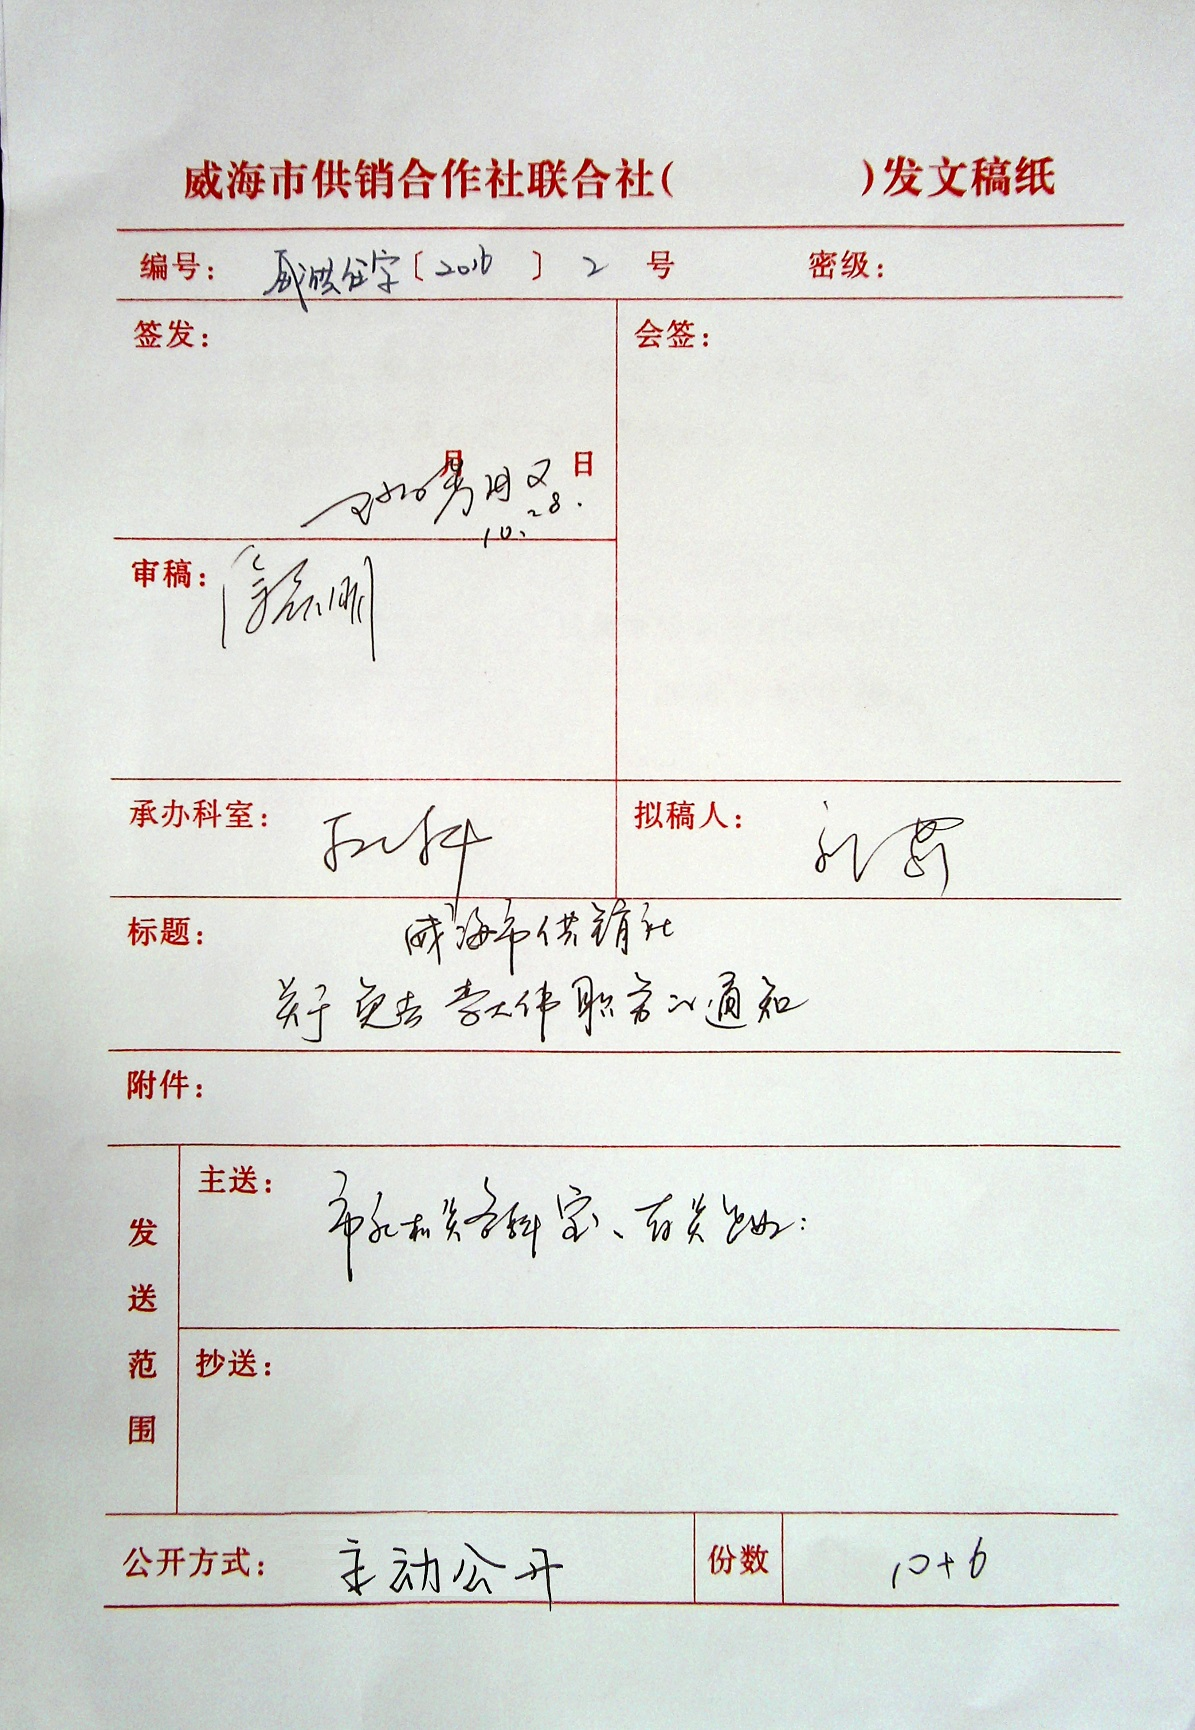 威海市供销合作社联合社( )发文稿纸
编号: 威供任字〔2016〕2号 密级:
签发: 会签:
月 日
同文
10.28.
审稿:
承办科室: 拟稿人:
标题: 威海市供销社
关于免去李大伟职务的通知
附件:
发送范围
主送: 市社机关各科室、有关企业:
抄送:
公开方式: 主动公开 份数 10+6